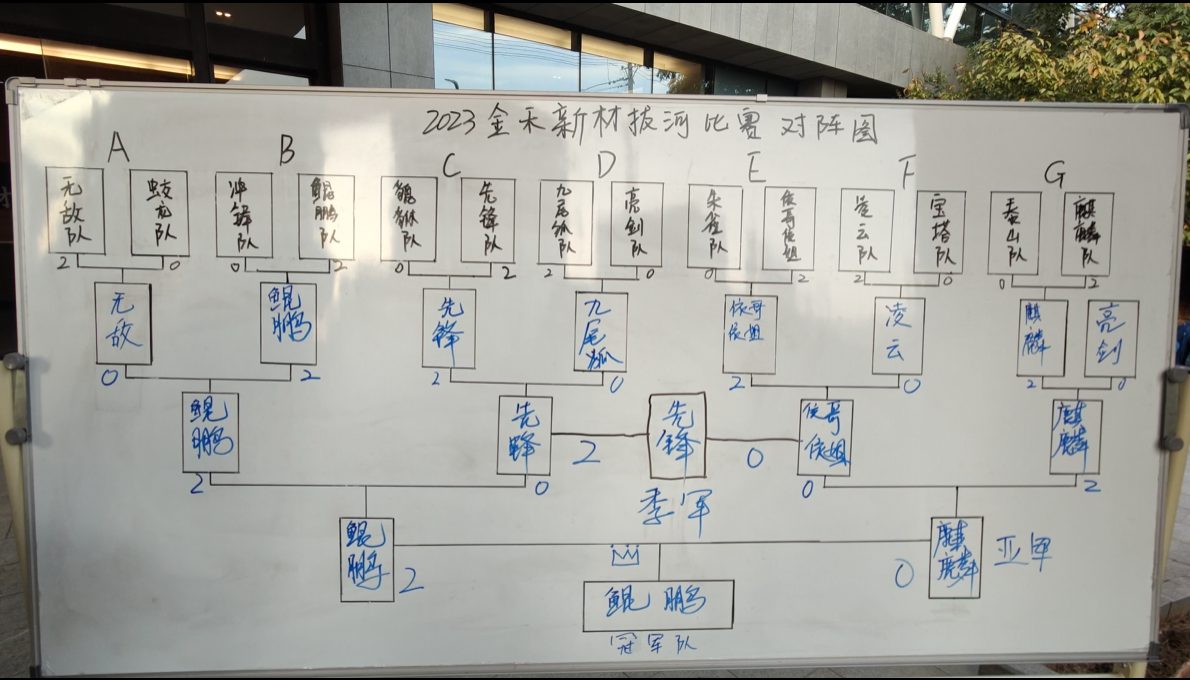 2023金禾新材拔河比赛对阵图
A B C D E F G
无敌队 蛟龙队 冲锋队 鲲鹏队 先锋队 九尾狐队 亮剑队 朱雀队 侠哥侠姐 凌云队 宝塔队 泰山队 麒麟队
2 0 0 2 0 2 2 0 0 2 2 0 0 2
无敌 鲲鹏 先锋 九尾狐 侠哥侠姐 凌云 麒麟 亮剑
0 2 2 0 2 0 2 0
鲲鹏 先锋 2 先锋 0 侠哥侠姐 麒麟
2 0 季军 0 2
鲲鹏 2 0 麒麟 亚军
鲲鹏
冠军队